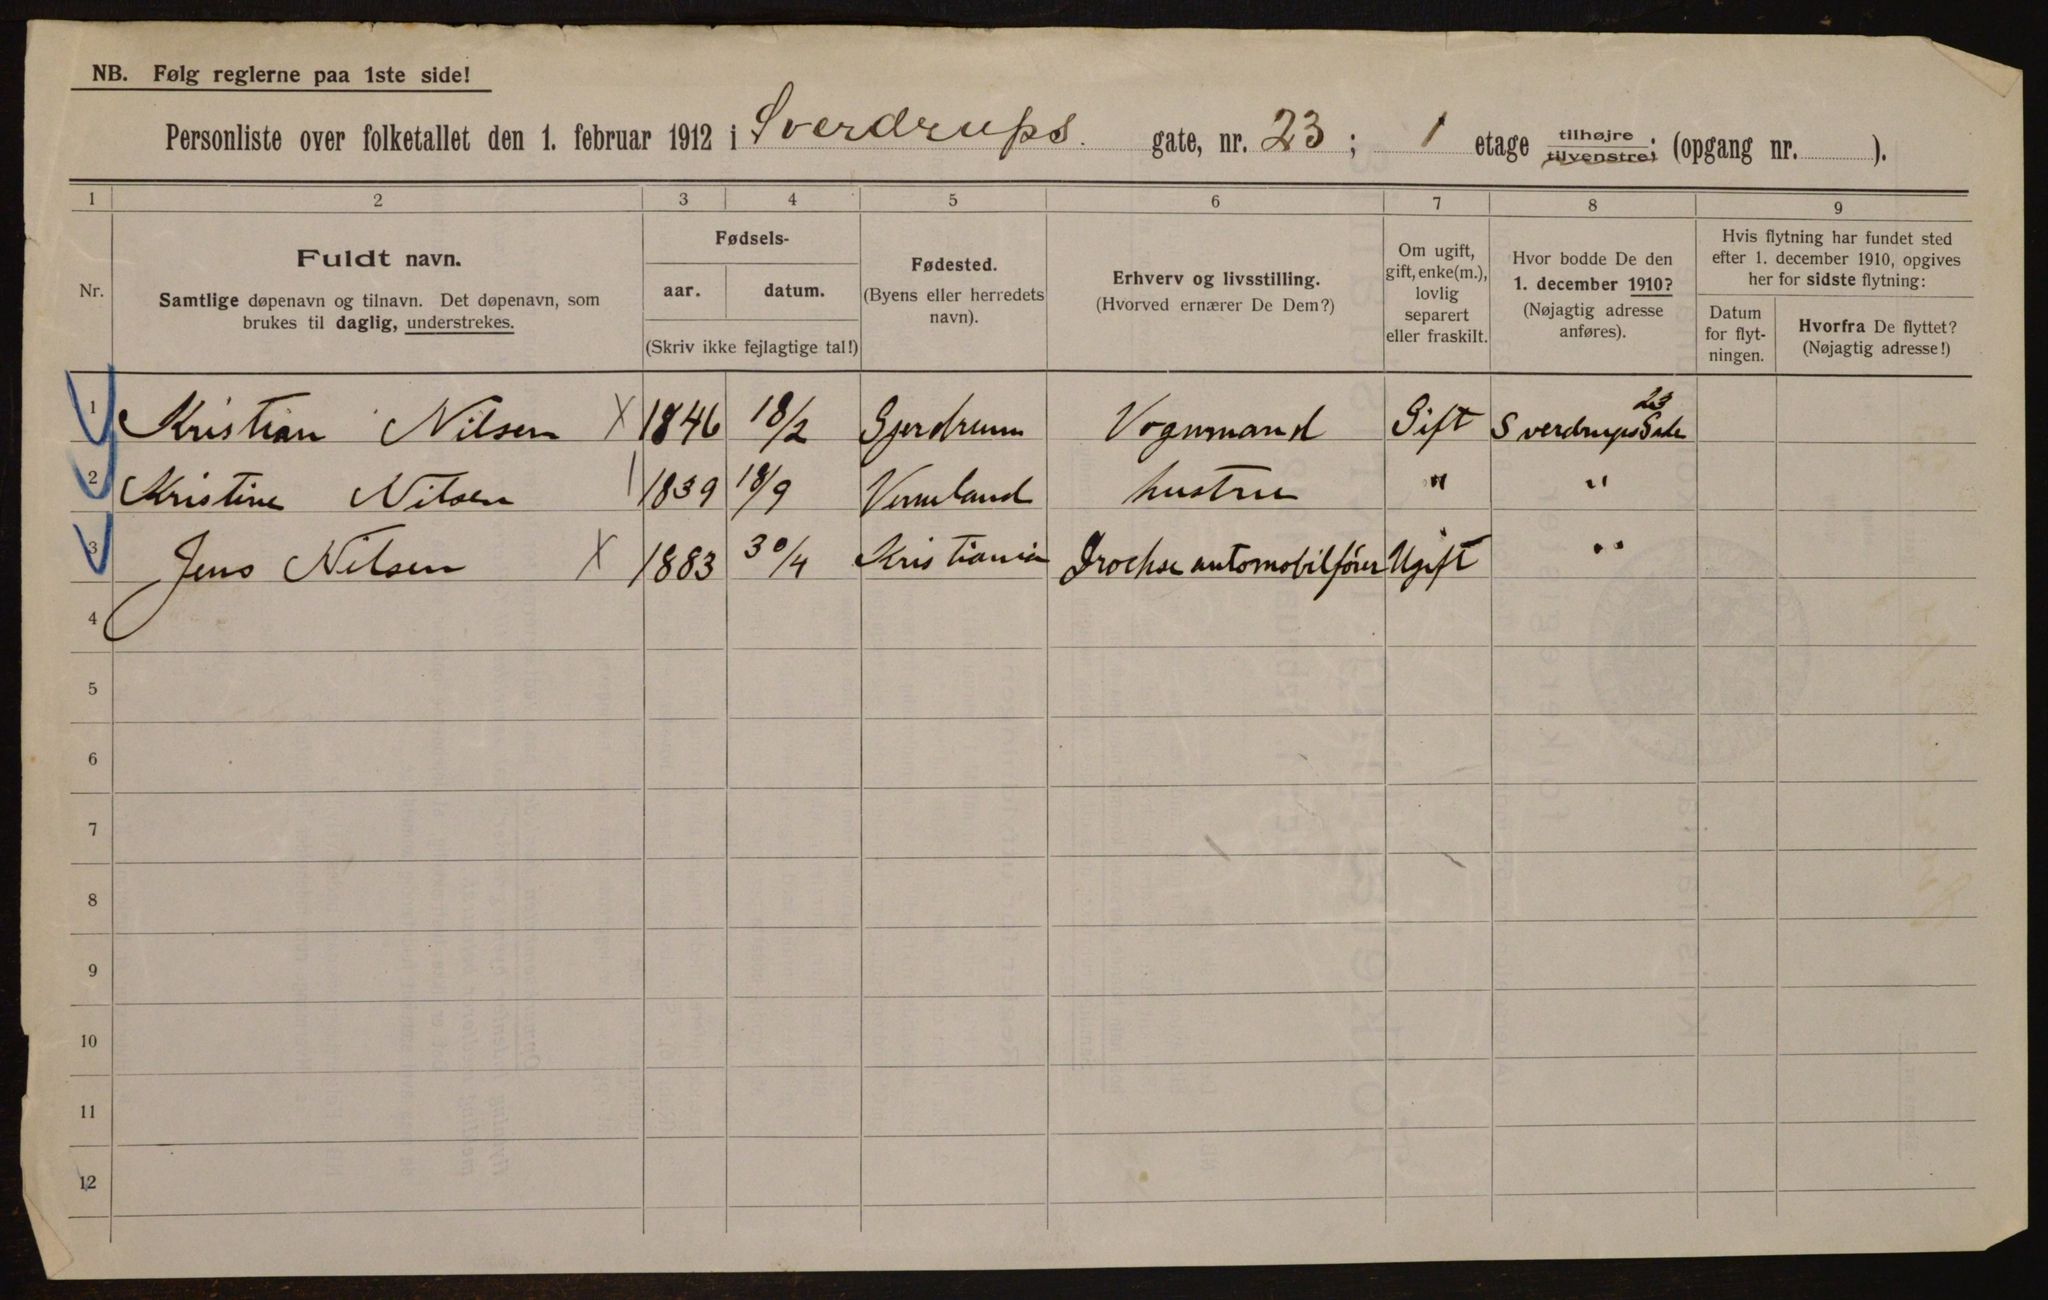 NB. Følg reglerne paa 1ste side!
Personliste over folketallet den 1. februar 1912 i Sverdrups gate, nr. 23; 1 etage tilhøjre tilvenstre; (opgang nr. ).
1 2 3 4 5 6 7 8 9
Nr.
Fuldt navn.
Samtlige døpenavn og tilnavn. Det døpenavn, som
brukes til daglig, understrekes.
Fødsels-
aar. datum.
(Skriv ikke fejlagtige tal!)
Fødested.
(Byens eller herredets
navn).
Erhverv og livsstilling.
(Hvorved ernærer De Dem?)
Om ugift,
gift, enke(m.),
lovlig
separert
eller fraskilt.
Hvor bodde De den
1. december 1910?
(Nøjagtig adresse
anføres).
Hvis flytning har fundet sted
efter 1. december 1910, opgives
her for sidste flytning:
Datum
for flyt-
ningen.
Hvorfra De flyttet?
(Nøjagtig adresse!)
1 Kristian Nilsen X 1846 18/2 Gjerdrum Vognmand Gift Sverdrups Gade 23
2 Kristine Nilsen 1839 18/9 Vermland hustru " "
3 Jens Nilsen X 1883 30/4 Kristiania Droche automobilfører Ugift "
4
5
6
7
8
9
10
11
12